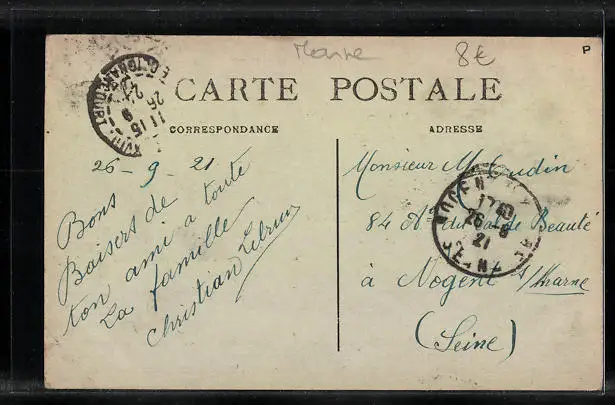 Marne 8€
P
CARTE POSTALE
CORRESPONDANCE
ADRESSE
26-9-21
Bons
Baisers de
ton ami a toute
La famille
Christian
Monsieur
84 de Beauté
à Nogent s/Marne
(Seine)
11 15
26 9
21
NOGENT
17
26-9
21